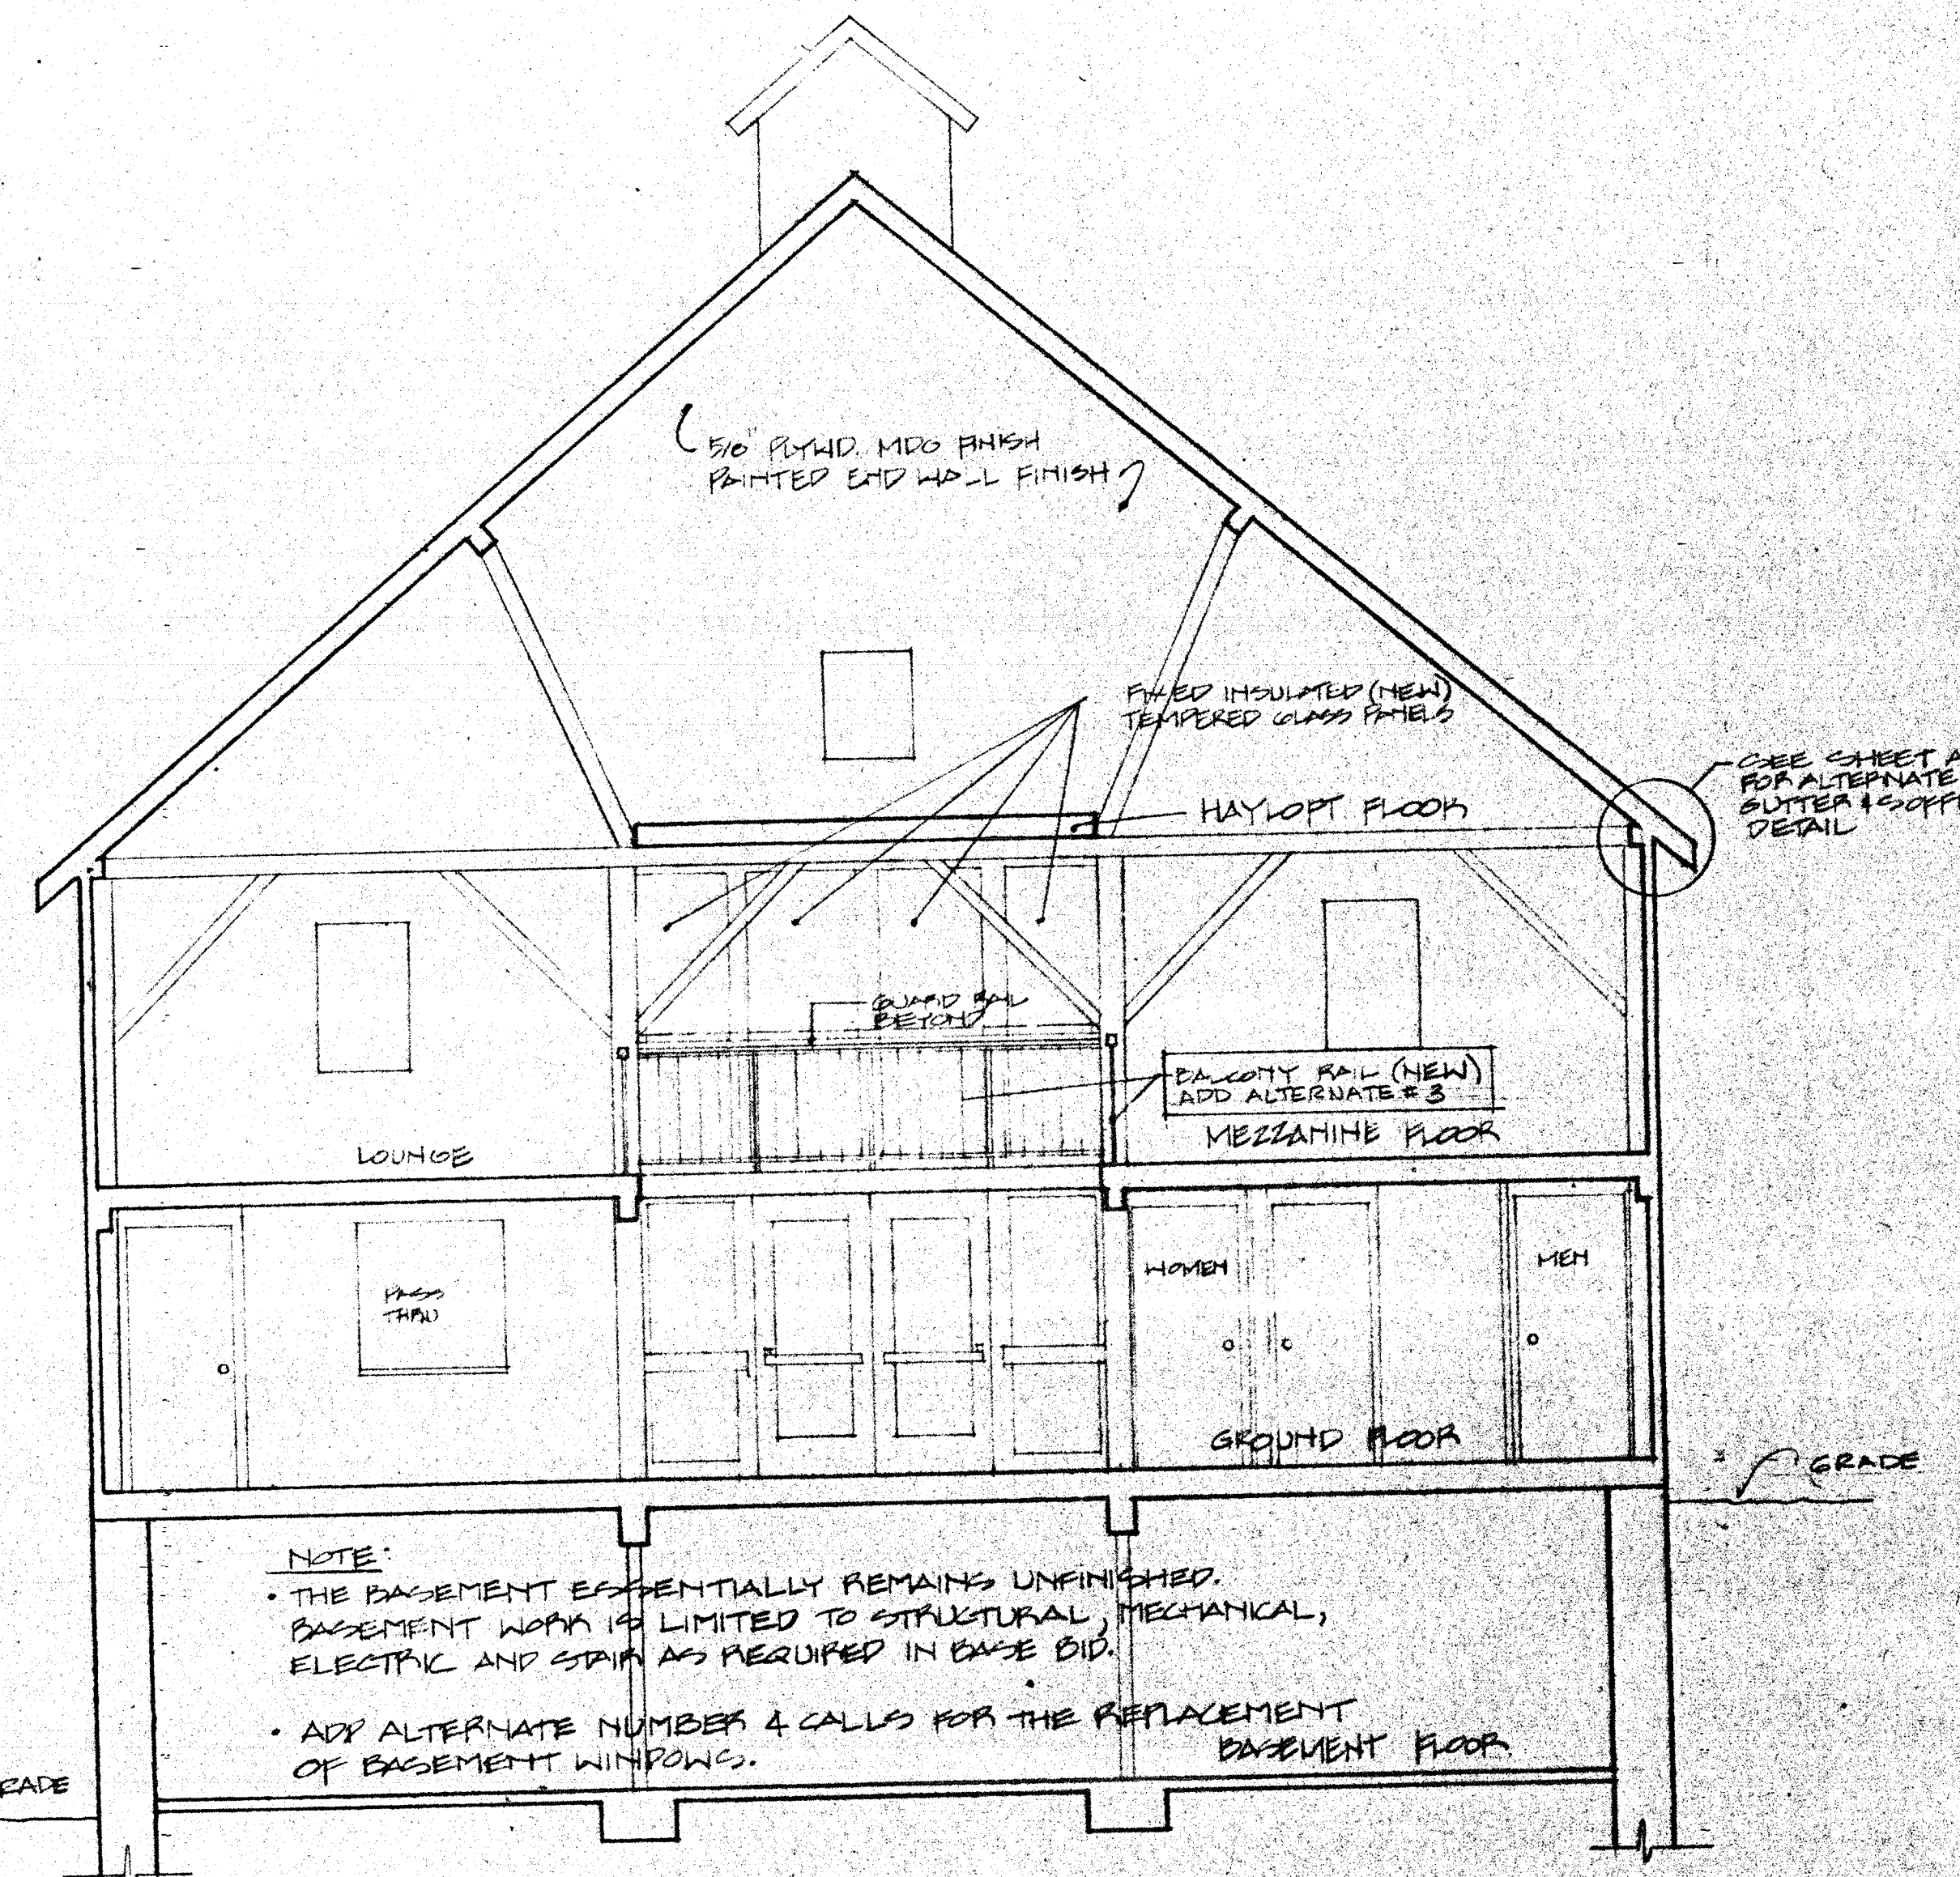 5/8" PLYWD. MDO FINISH
PAINTED END WALL FINISH
FIXED INSULATED (NEW)
TEMPERED GLASS PANELS
SEE SHEET A
FOR ALTERNATE
GUTTER & SOFF
DETAIL
HAYLOFT FLOOR
GUARD RAIL
BEYOND
BALCONY RAIL (NEW)
ADD ALTERNATE # 3
MEZZANINE FLOOR
LOUNGE
WOMEN
MEN
PASS
THRU
GROUND FLOOR
GRADE
NOTE:
• THE BASEMENT ESSENTIALLY REMAINS UNFINISHED.
BASEMENT WORK IS LIMITED TO STRUCTURAL, MECHANICAL,
ELECTRIC AND STAIR AS REQUIRED IN BASE BID.
• ADD ALTERNATE NUMBER 4 CALLS FOR THE REPLACEMENT
OF BASEMENT WINDOWS.
BASEMENT FLOOR
RADE